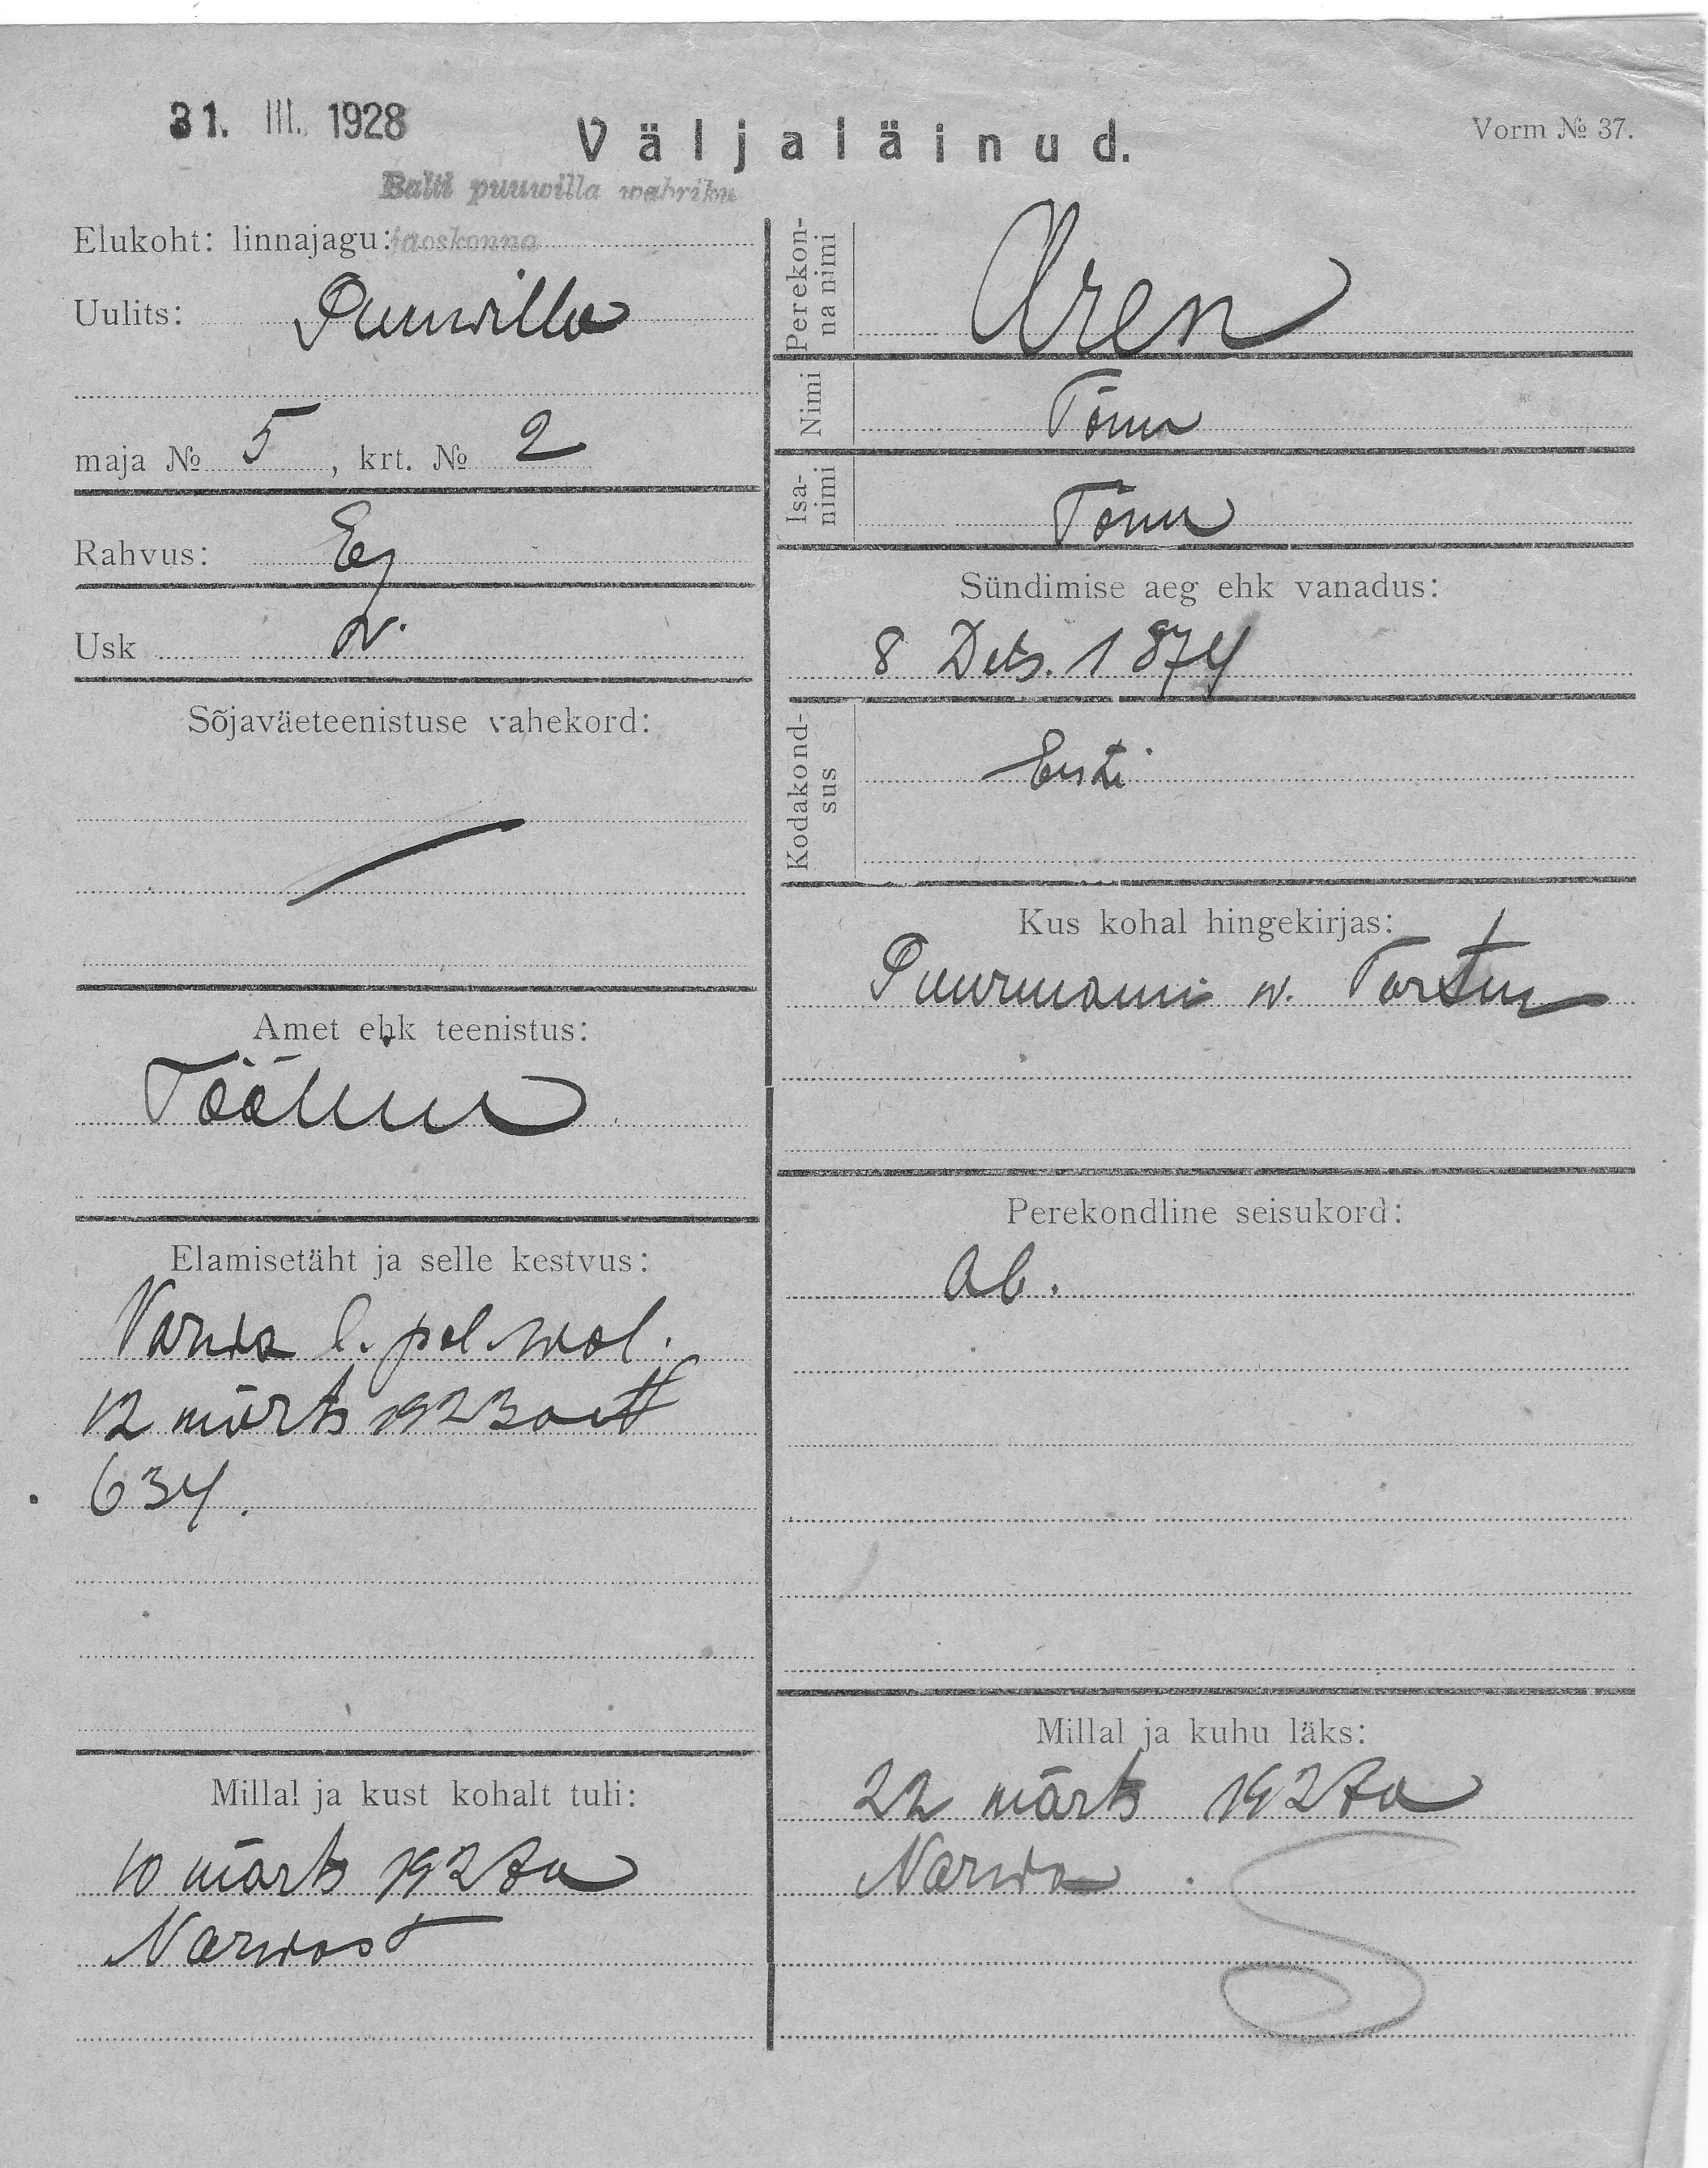 31. III. 1928
Väljaläinud.
Vorm № 37.
Balti puuwilla wabriku
Elukoht: linnajagu: jaoskonna
Uulits: Puuwilla
maja № 5, krt. № 2
Rahvus:
Usk
Sõjaväeteenistuse vahekord:
Amet ehk teenistus:
Tööline
Elamisetäht ja selle kestvus:
Narva l. pol. wal.
12 märts 1923 a №
634.
Millal ja kust kohalt tuli:
10 märts 192 a
Narwast
Perekonna nimi Oren
Nimi Tõnu
Isanimi Tõnu
Sündimise aeg ehk vanadus:
8 Dets. 1874
Kodakondsus Eesti
Kus kohal hingekirjas:
Puurmanni w. Tartu
Perekondline seisukord:
Ab.
Millal ja kuhu läks:
22 märts 192 a
Narwa.